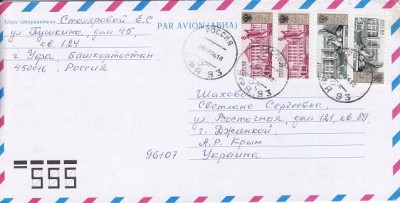 Адрес отправителя: Столяровой Е.С
ул Пушкина, дом 45,
кв 124
г Уфа, Башкортостан
450016, Россия
PAR AVION (АВИА)
РОССИЯ
93
Шахова
Светлана Сергеевна
ул. Восточная, дом 121, кв. 89,
г. Джанкой
А.Р. Крым
96107 Украина